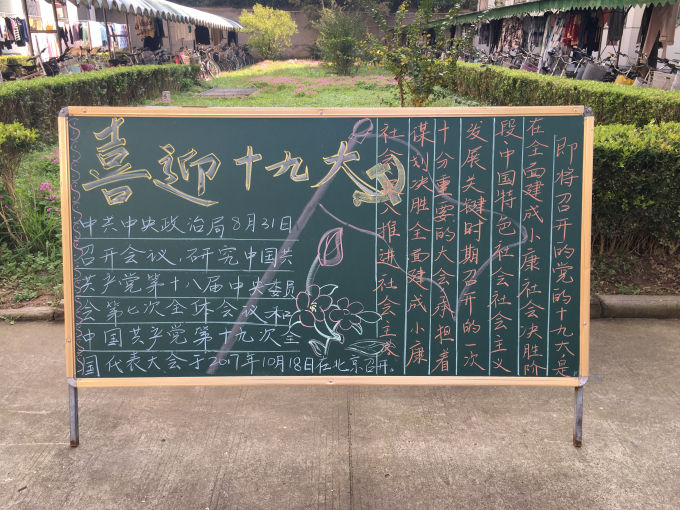 喜迎十九大
中共中央政治局8月31日
召开会议,研究中国共
产党第十八届中央委员
会第七次全体会议和
中国共产党第十九次全
国代表大会于2017年10月18日在北京召开。
即将召开的党的十九大,是
在全面建成小康社会决胜阶
段、中国特色社会社会主义
发展关键时期召开的一次
十分重要的大会,承担着
谋划决胜全面建成小康
社会、入推进社会主义